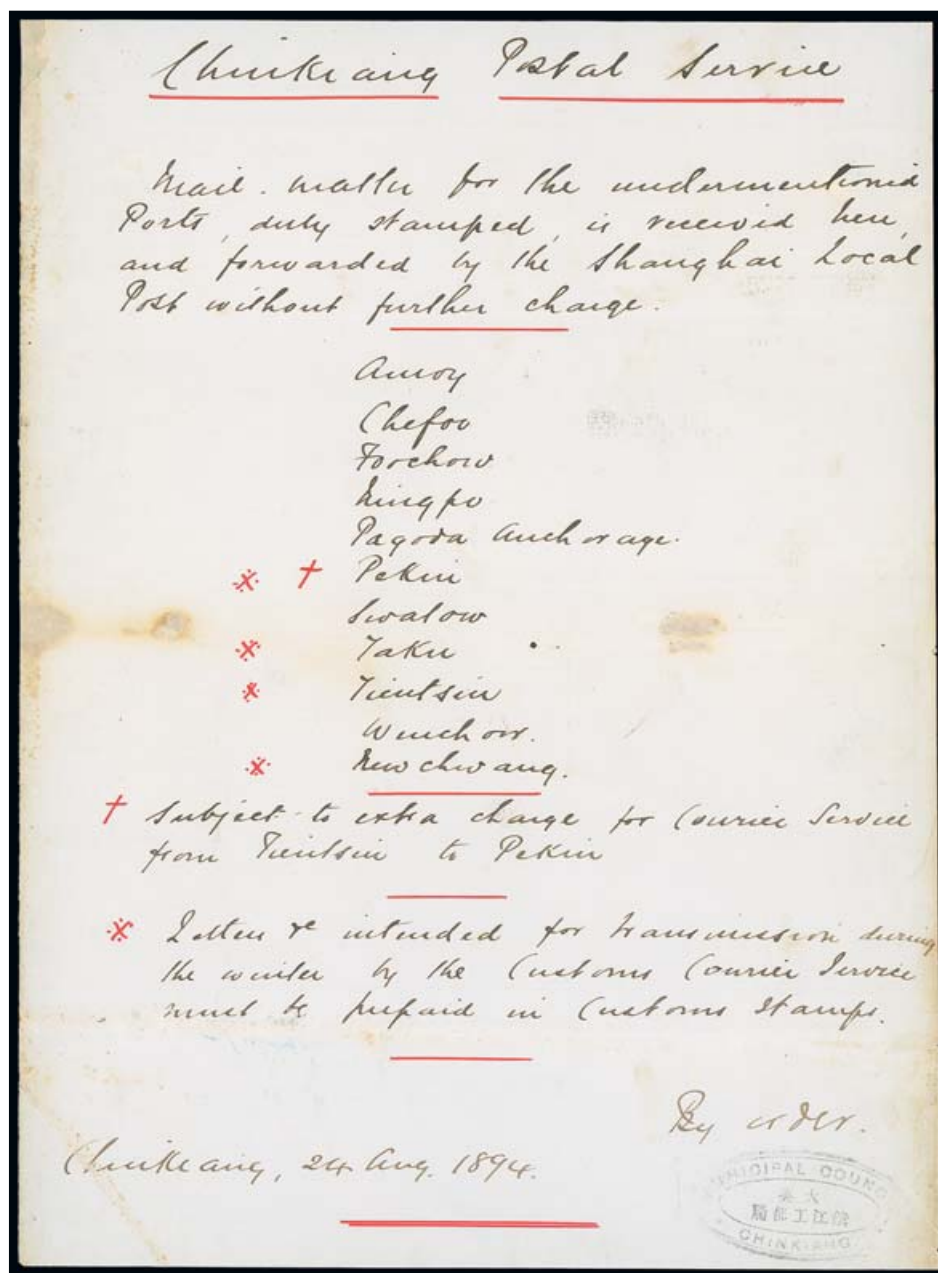 Chinkiang Postal Service
Mail matter for the undermentioned
Ports, duly stamped, is received here,
and forwarded by the Shanghai Local
Post without further charge.
Amoy
Chefoo
Foochow
Ningpo
Pagoda Anchorage.
※ † Pekin
Swatow
※ Taku
※ Tientsin
Wenchow.
※ Newchwang.
† Subject to extra charge for Courier Service
from Tientsin to Pekin
※ Letters &c intended for transmission during
the winter by the Customs Courier Service
must be prepaid in Customs Stamps.
By order.
Chinkiang, 24 Aug. 1894.
MUNICIPAL COUNC
大英
鎮江工部局
CHINKIANG